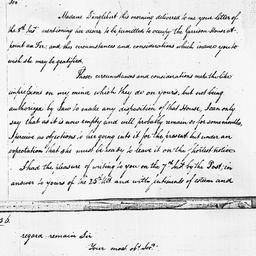 Madame Singlebut this morning delivered to me your letter of
the 5th Inst mentioning her desire to be permitted to occupy the Garrison House at
point au Fer: and the circumstances and considerations which induce you to
wish she may be gratified.
These circumstances and considerations make the like
impressions on my mind which they do on yours, but not being
authorized by Law to make any disposition of that House, I can only
say that as it is now empty and will probably remain so for some while,
I perceive no objections to her going into it for the present but under an
expectation that she must be ready to leave it on the shortest notice.
I had the pleasure of writing to you on the 7th Inst by the Post, in
answer to yours of the 25th Ult and with sentiments of esteem and
regard remain Sir
Your most obt Servt